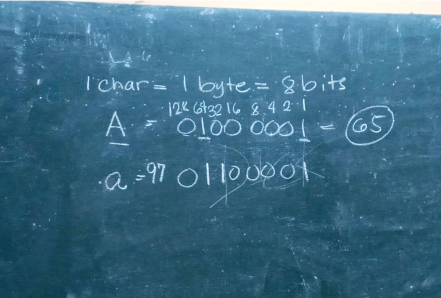 1 char = 1 byte = 8 bits
128 64 32 16 8 4 2 1
A = 0100 0001 = 65
a = 97 01100001